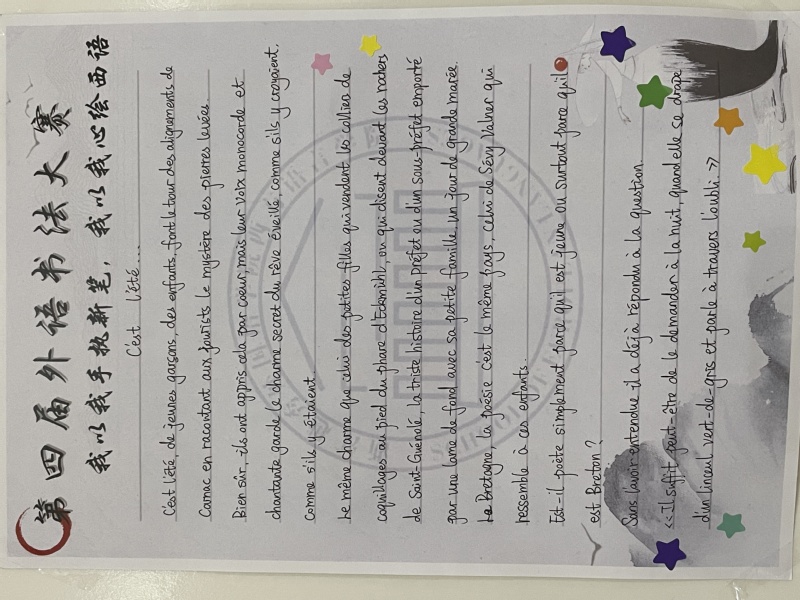 第四届外语书法大赛
我以我手执新笔，我以我心绘西语
C'est l'été...
C'est l'été, de jeunes garsons, des enfants, font le tour des alignements de
Carnac en racontant aux tourists le mystère des pierres levées.
Bien sûr, ils ont appris cela par coeur, mais leur voix monocorde et
chantante garde le charme secret du rêve éveillé, comme s'ils y croyaient,
comme s'ils y étaient.
Le même charme que celui des petites filles qui vendent les colliers de
coquillages au pied du phare d'Eckmühl, ou qui disent devant les rochers
de Saint-Guénolé, la triste histoire d'un préfet ou d'un sous-préfet emporté
par une lame de fond avec sa petite famille, un jour de grande marée.
La Bretagne, la poésie c'est le même pays, celui de Sévy Valner qui
ressemble à ces enfants.
Est-il poète simplement parce qu'il est jeune ou surtout parce qu'il
est Breton?
Sans l'avoir entendue il a déjà répondu à la question.
<<Il suffit peut-être de le demander à la nuit, quand elle se drape
d'un linceul vert-de-gris et parle à travers l'oubli.>>